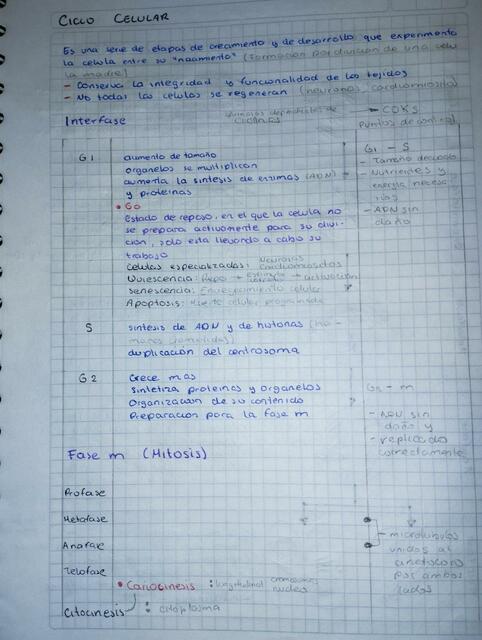 CICLO CELULAR
Es una serie de etapas de crecimiento y de desarrollo que experimenta
la celula entre su "nacimiento" (formación por división de una celu
la madre)
- Conserva la integridad y funcionalidad de los tejidos
- No todas las celulas se regeneran (neuronas, cardiomiocitos)
Interfase
dependientes de
ciclinas
CDKs
Puntos de control
G1
aumento de tamaño
organelos se multiplican
aumenta la sintesis de enzimas (ADN)
y proteinas
• G0
Estado de reposo, en el que la celula no
se prepara activamente para su divi-
cion, solo esta llevando a cabo su
trabajo
celulas especializadas: Neuronas
cardiomiocitos
Quiescencia: Reposo + estimulo + activación
Senescencia: Envejecimiento celular
Apoptosis: Muerte celular programada
G1 - S
- Tamaño
- Nutrientes y
energia necesa
rios
- ADN sin
daño
S
sintesis de ADN y de histonas
duplicación del centrosoma
G2
Crece mas
sintetiza proteinas y organelos
Organización de su contenido
Preparación para la fase m
G2 - m
- ADN sin
daño y
- replicado
correctamente
Fase m (Mitosis)
Profase
Metafase
Anafase
Telofase
- microtubulos
unidos al
cinetocoro
por ambos
lados
• Cariocinesis : cromosomas
nucleo
Citocinesis : citoplasma